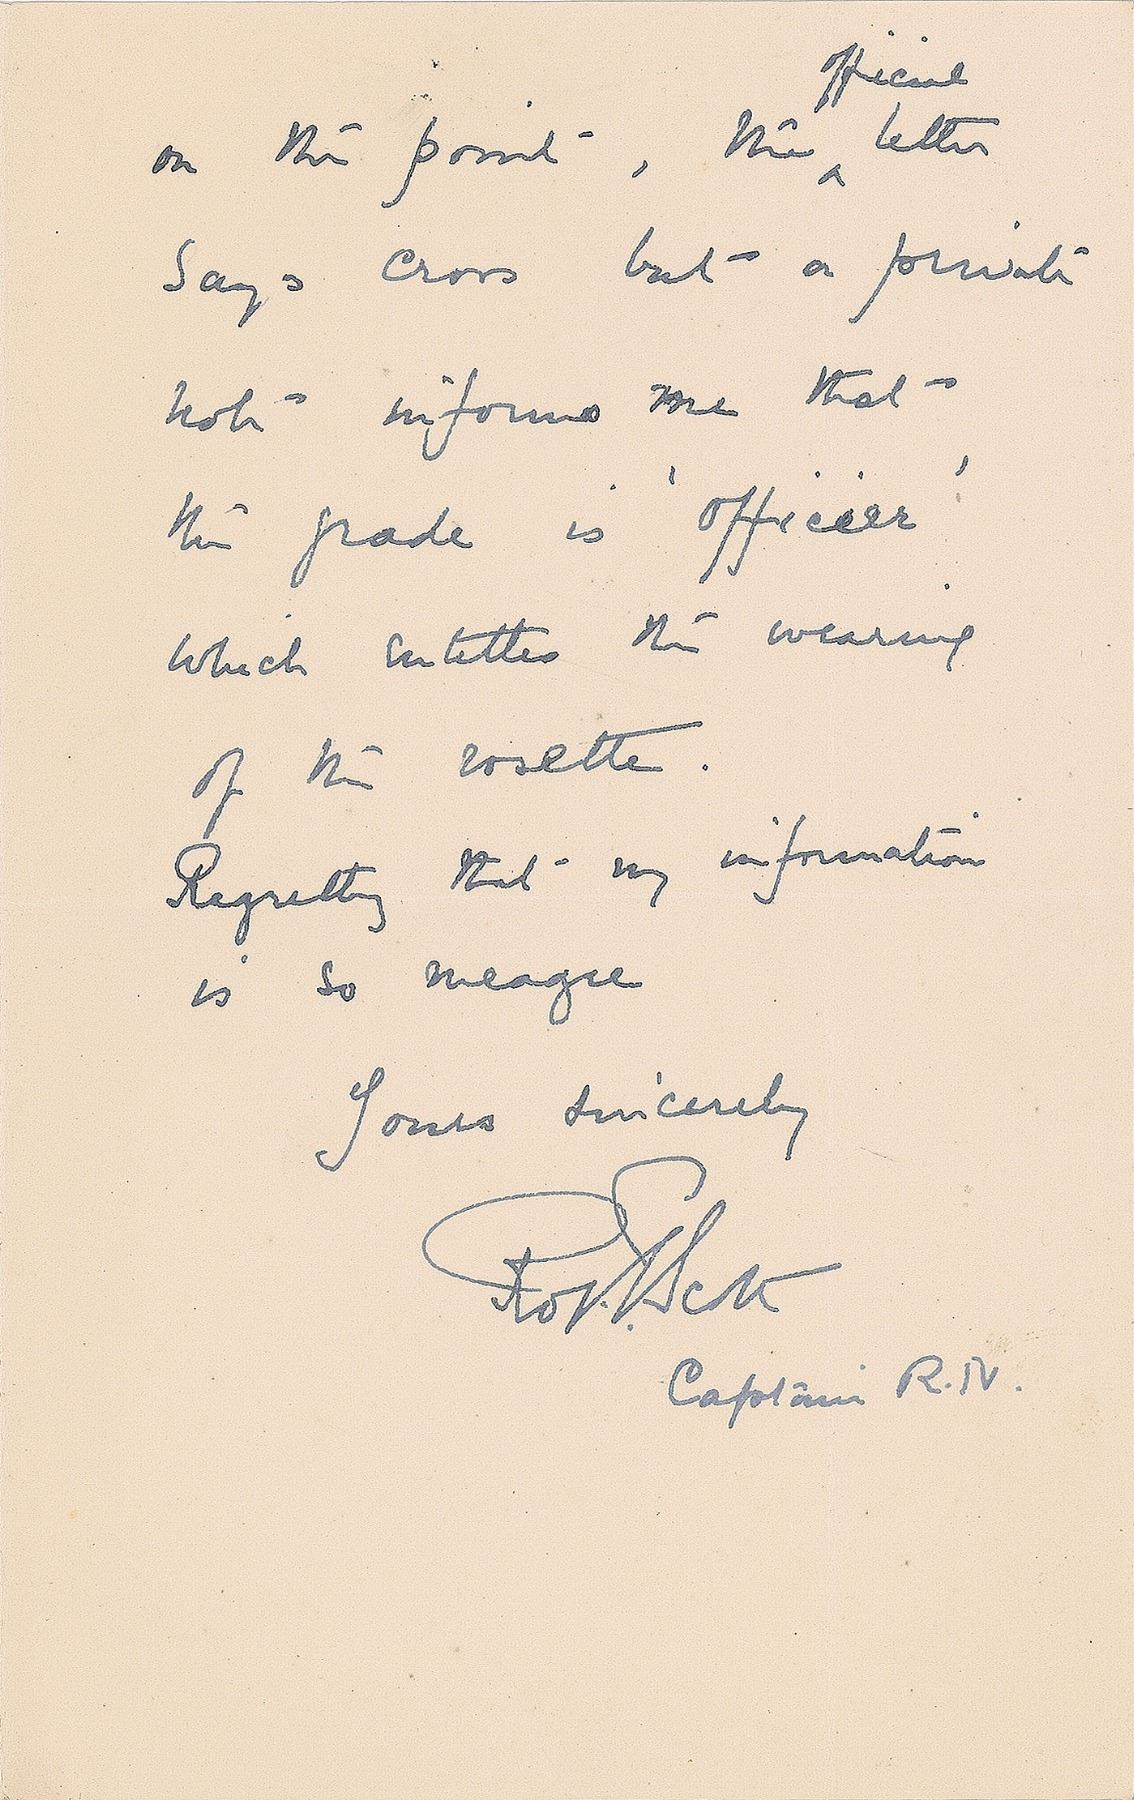 official
on the point, the ‸ letter
Says Cross but a private
note informs me that
the grade is 'officier'
which entitles the wearing
of the rosette.
Regretting that my information
is so meagre
Yours sincerely
R Scott
Captain R.N.